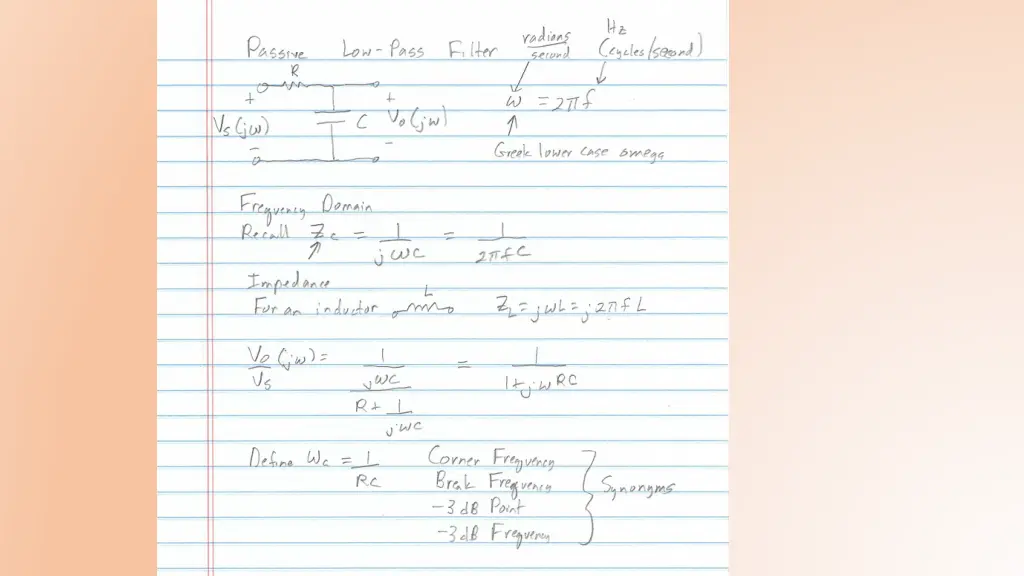 Passive Low-Pass Filter radians/second Hz (cycles/second)
R
+ +
Vs(jω) C Vo(jω) ω = 2πf
- -
Greek lower case omega
Frequency Domain
Recall Zc = 1/jωC = 1/2πfC
Impedance
For an inductor L ZL = jωL = j2πfL
Vo/Vs (jω) = (1/jωC)/(R + 1/jωC) = 1/(1+jωRC)
Define ωc = 1/RC Corner Frequency
Break Frequency
-3dB Point
-3dB Frequency
Synonyms